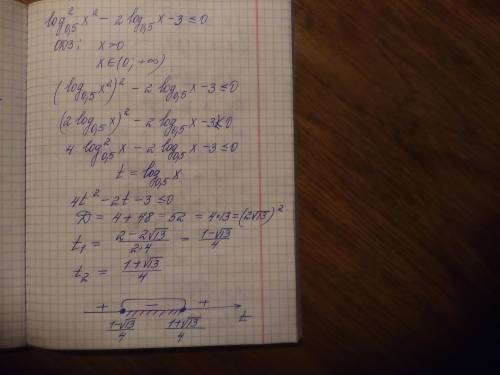 log²₀,₅ x² - 2 log₀,₅ x - 3 ≤ 0
ОДЗ: x>0
x∈(0; +∞)
(log₀,₅ x²)² - 2 log₀,₅ x - 3 ≤ 0
(2 log₀,₅ x)² - 2 log₀,₅ x - 3 ≤ 0
4 log²₀,₅ x - 2 log₀,₅ x - 3 ≤ 0
t = log₀,₅ x
4t² - 2t - 3 ≤ 0
D = 4 + 48 = 52 = 4·13 = (2√13)²
t₁ = (2-2√13)/(2·4) = (1-√13)/4
t₂ = (1+√13)/4
+ − +
(1-√13)/4 (1+√13)/4 t